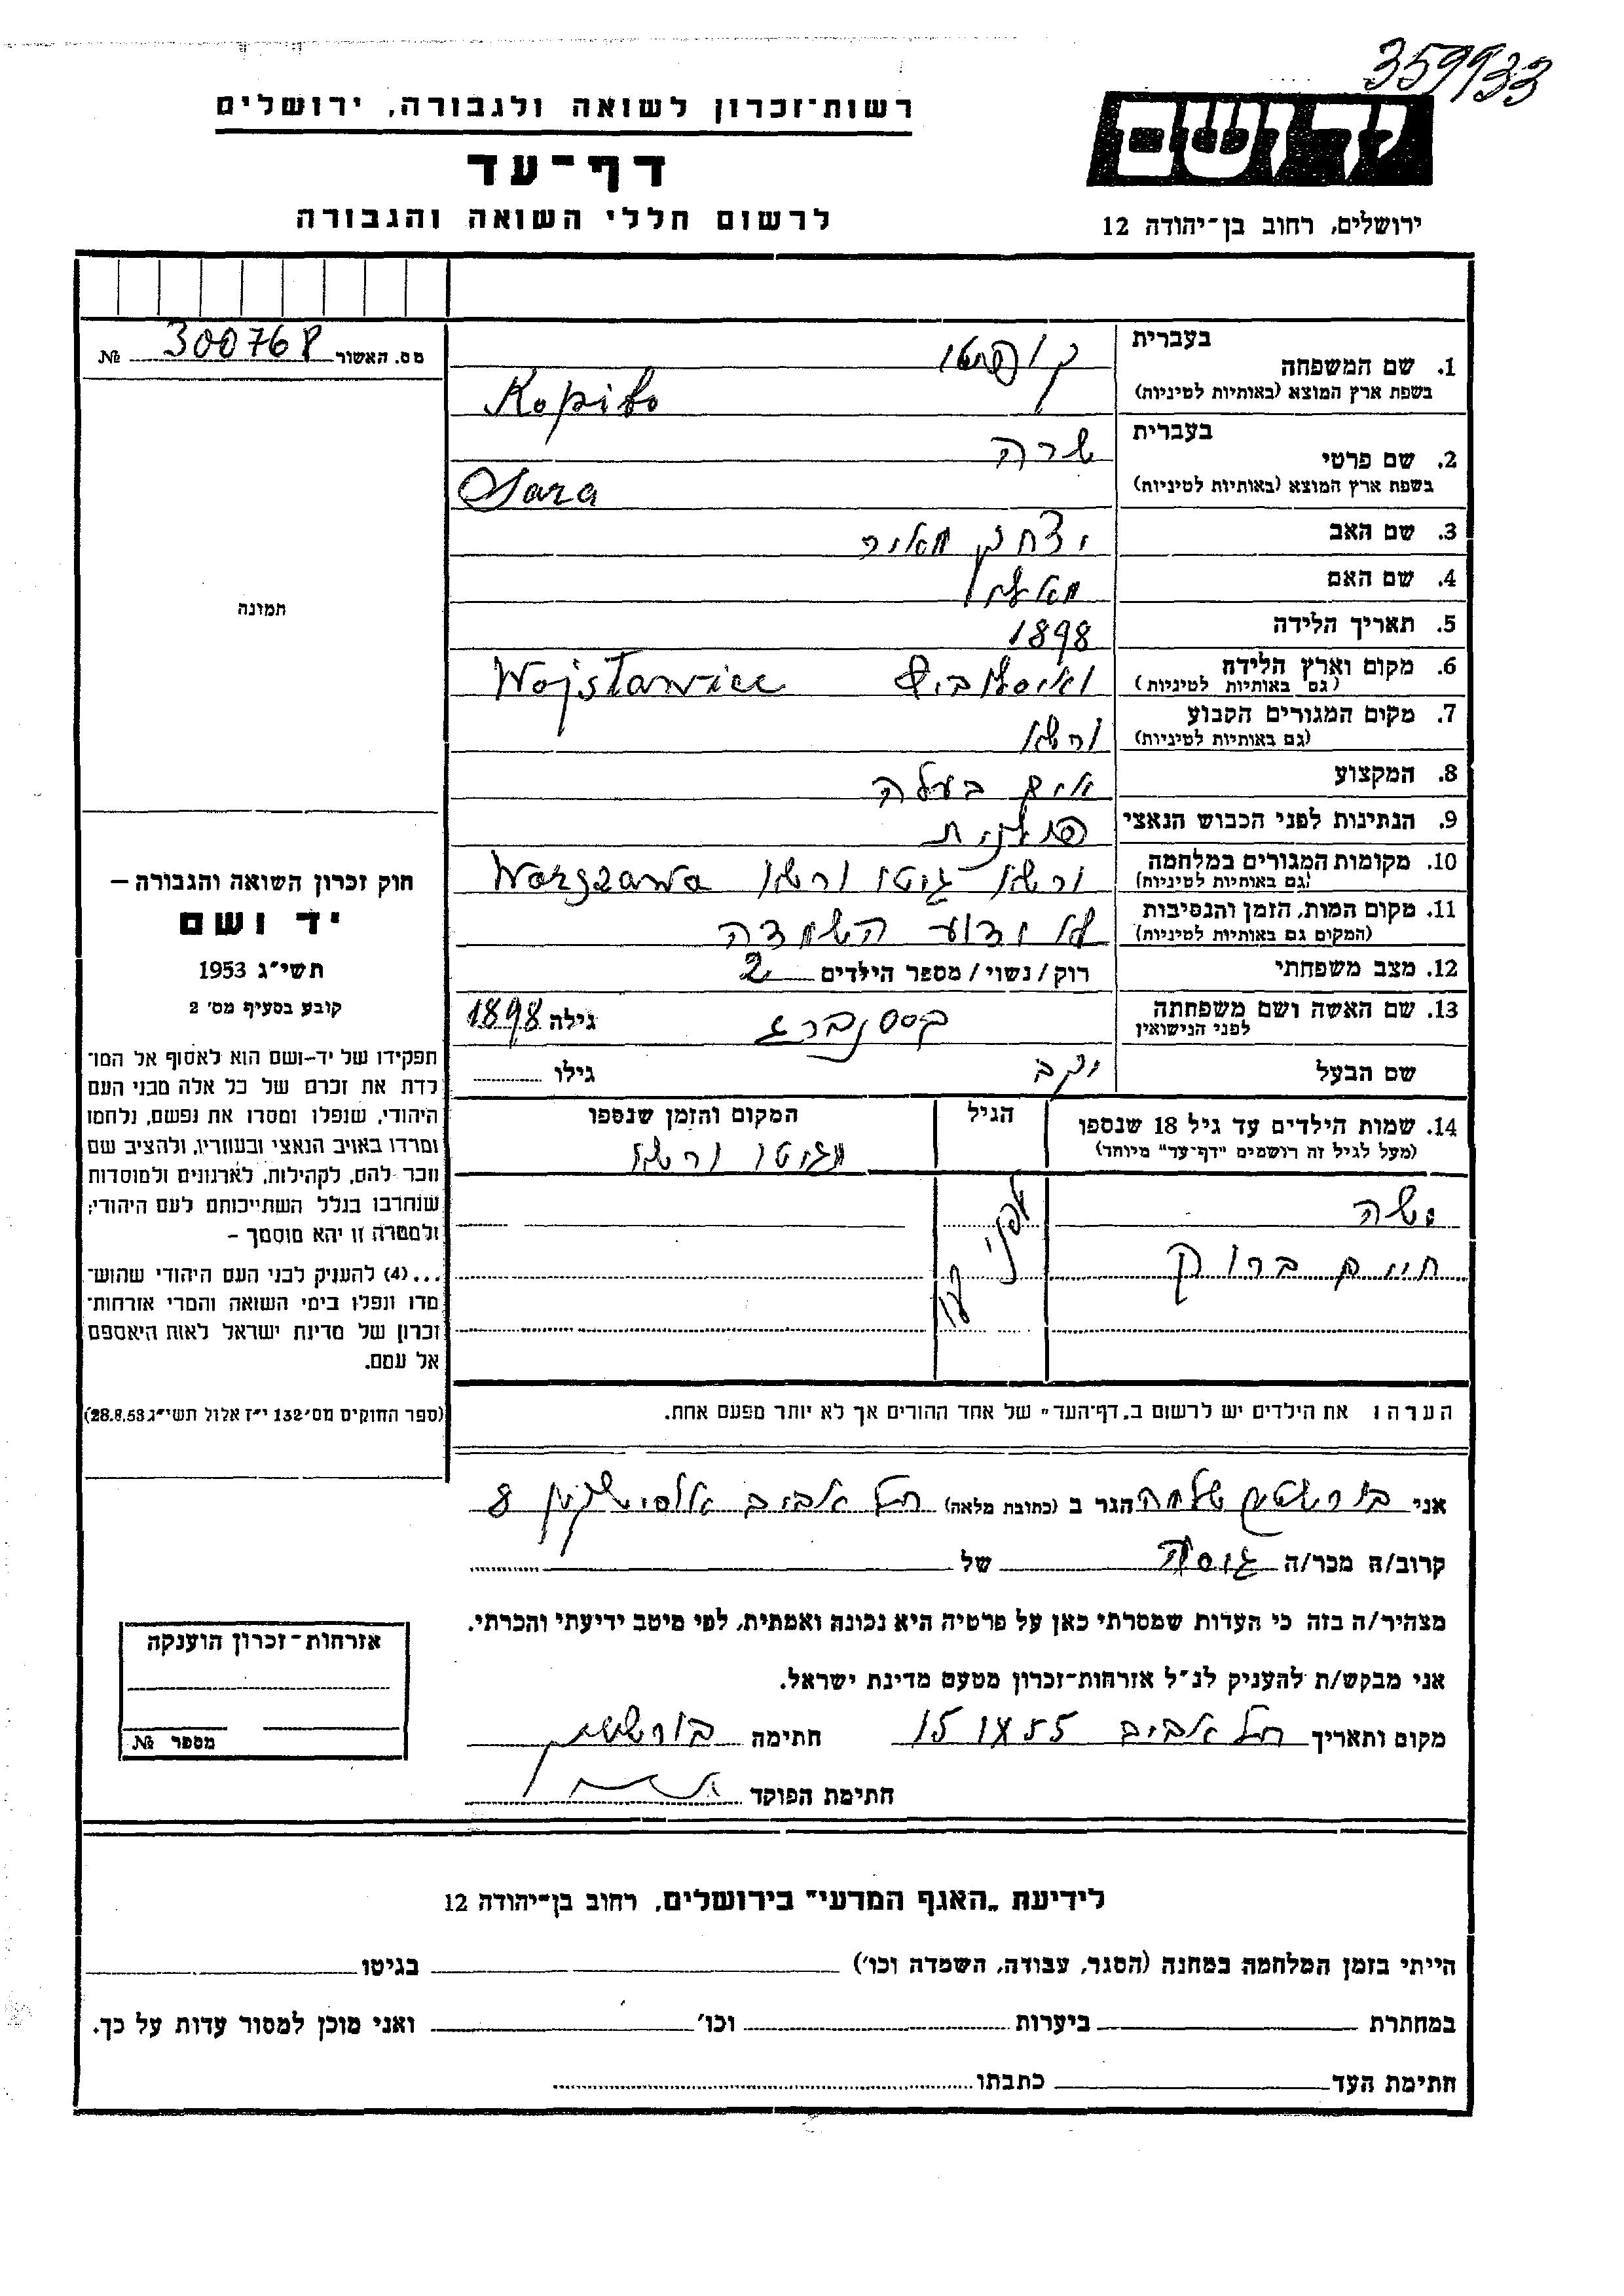 359933
רשות־זכרון לשואה ולגבורה, ירושלים
יד ושם
דף־עד
לרשום חללי השואה והגבורה
ירושלים, רחוב בן־יהודה 12
מס. האשור 300768 №
בעברית
1. שם המשפחה
בשפת ארץ המוצא (באותיות לטיניות) Kopito
בעברית שרה
2. שם פרטי
בשפת ארץ המוצא (באותיות לטיניות) Sara
3. שם האב יצחק מאיר
4. שם האם
5. תאריך הלידה 1898
6. מקום וארץ הלידה Wojstawice
(גם באותיות לטיניות)
7. מקום המגורים הקבוע ורשא
(גם באותיות לטיניות)
8. המקצוע
9. הנתינות לפני הכבוש הנאצי פולנית
10. מקומות המגורים במלחמה ורשא גיטו ורשא Warszawa
(גם באותיות לטיניות)
11. מקום המות, הזמן והנסיבות לא ידוע השמדה
(המקום גם באותיות לטיניות)
12. מצב משפחתי רוק/נשוי/מספר הילדים 2
13. שם האשה ושם משפחתה גילה 1898
לפני הנישואין
שם הבעל יעקב גילו
14. שמות הילדים עד גיל 18 שנספו הגיל המקום והזמן שנספו
(מעל לגיל זה רושמים "דף־עד" מיוחד)
גיטו ורשא
חיים ברוך
הערה: את הילדים יש לרשום ב„דף־העד" של אחד ההורים אך לא יותר מפעם אחת.
תמונה
חוק זכרון השואה והגבורה –
יד ושם
תשי"ג 1953
קובע בסעיף מס' 2
תפקידו של יד-ושם הוא לאסוף אל המו־
לדת את זכרם של כל אלה מבני העם
היהודי, שנפלו ומסרו את נפשם, נלחמו
ומרדו באויב הנאצי ובעוזריו, ולהציב שם
וזכר להם, לקהילות, לארגונים ולמוסדות
שנחרבו בגלל השתייכותם לעם היהודי;
ולמטרה זו יהא מוסמך –
...(4) להעניק לבני העם היהודי שהוש־
מדו ונפלו בימי השואה והמרי אזרחות־
זכרון של מדינת ישראל לאות היאספם
אל עמם.
(ספר החוקים מס' 132 י"ז אלול תשי"ג 28.8.53)
אני בורשטין הגר ב (כתובת מלאה) תל אביב 8
קרוב/ה מכר/ה גיסה של
מצהיר/ה בזה כי העדות שמסרתי כאן על פרטיה היא נכונה ואמתית, לפי מיטב ידיעתי והכרתי.
אני מבקש/ת להעניק לנ"ל אזרחות־זכרון מטעם מדינת ישראל.
מקום ותאריך תל אביב 15 IX 55 חתימה בורשטין
חתימת הפוקד
אזרחות־זכרון הוענקה
מספר №
לידיעת „האגף המדעי" בירושלים, רחוב בן־יהודה 12
הייתי בזמן המלחמה במחנה (הסגר, עבודה, השמדה וכו') בגיטו
במחתרת ביערות וכו' ואני מוכן למסור עדות על כך.
חתימת העד כתבתו